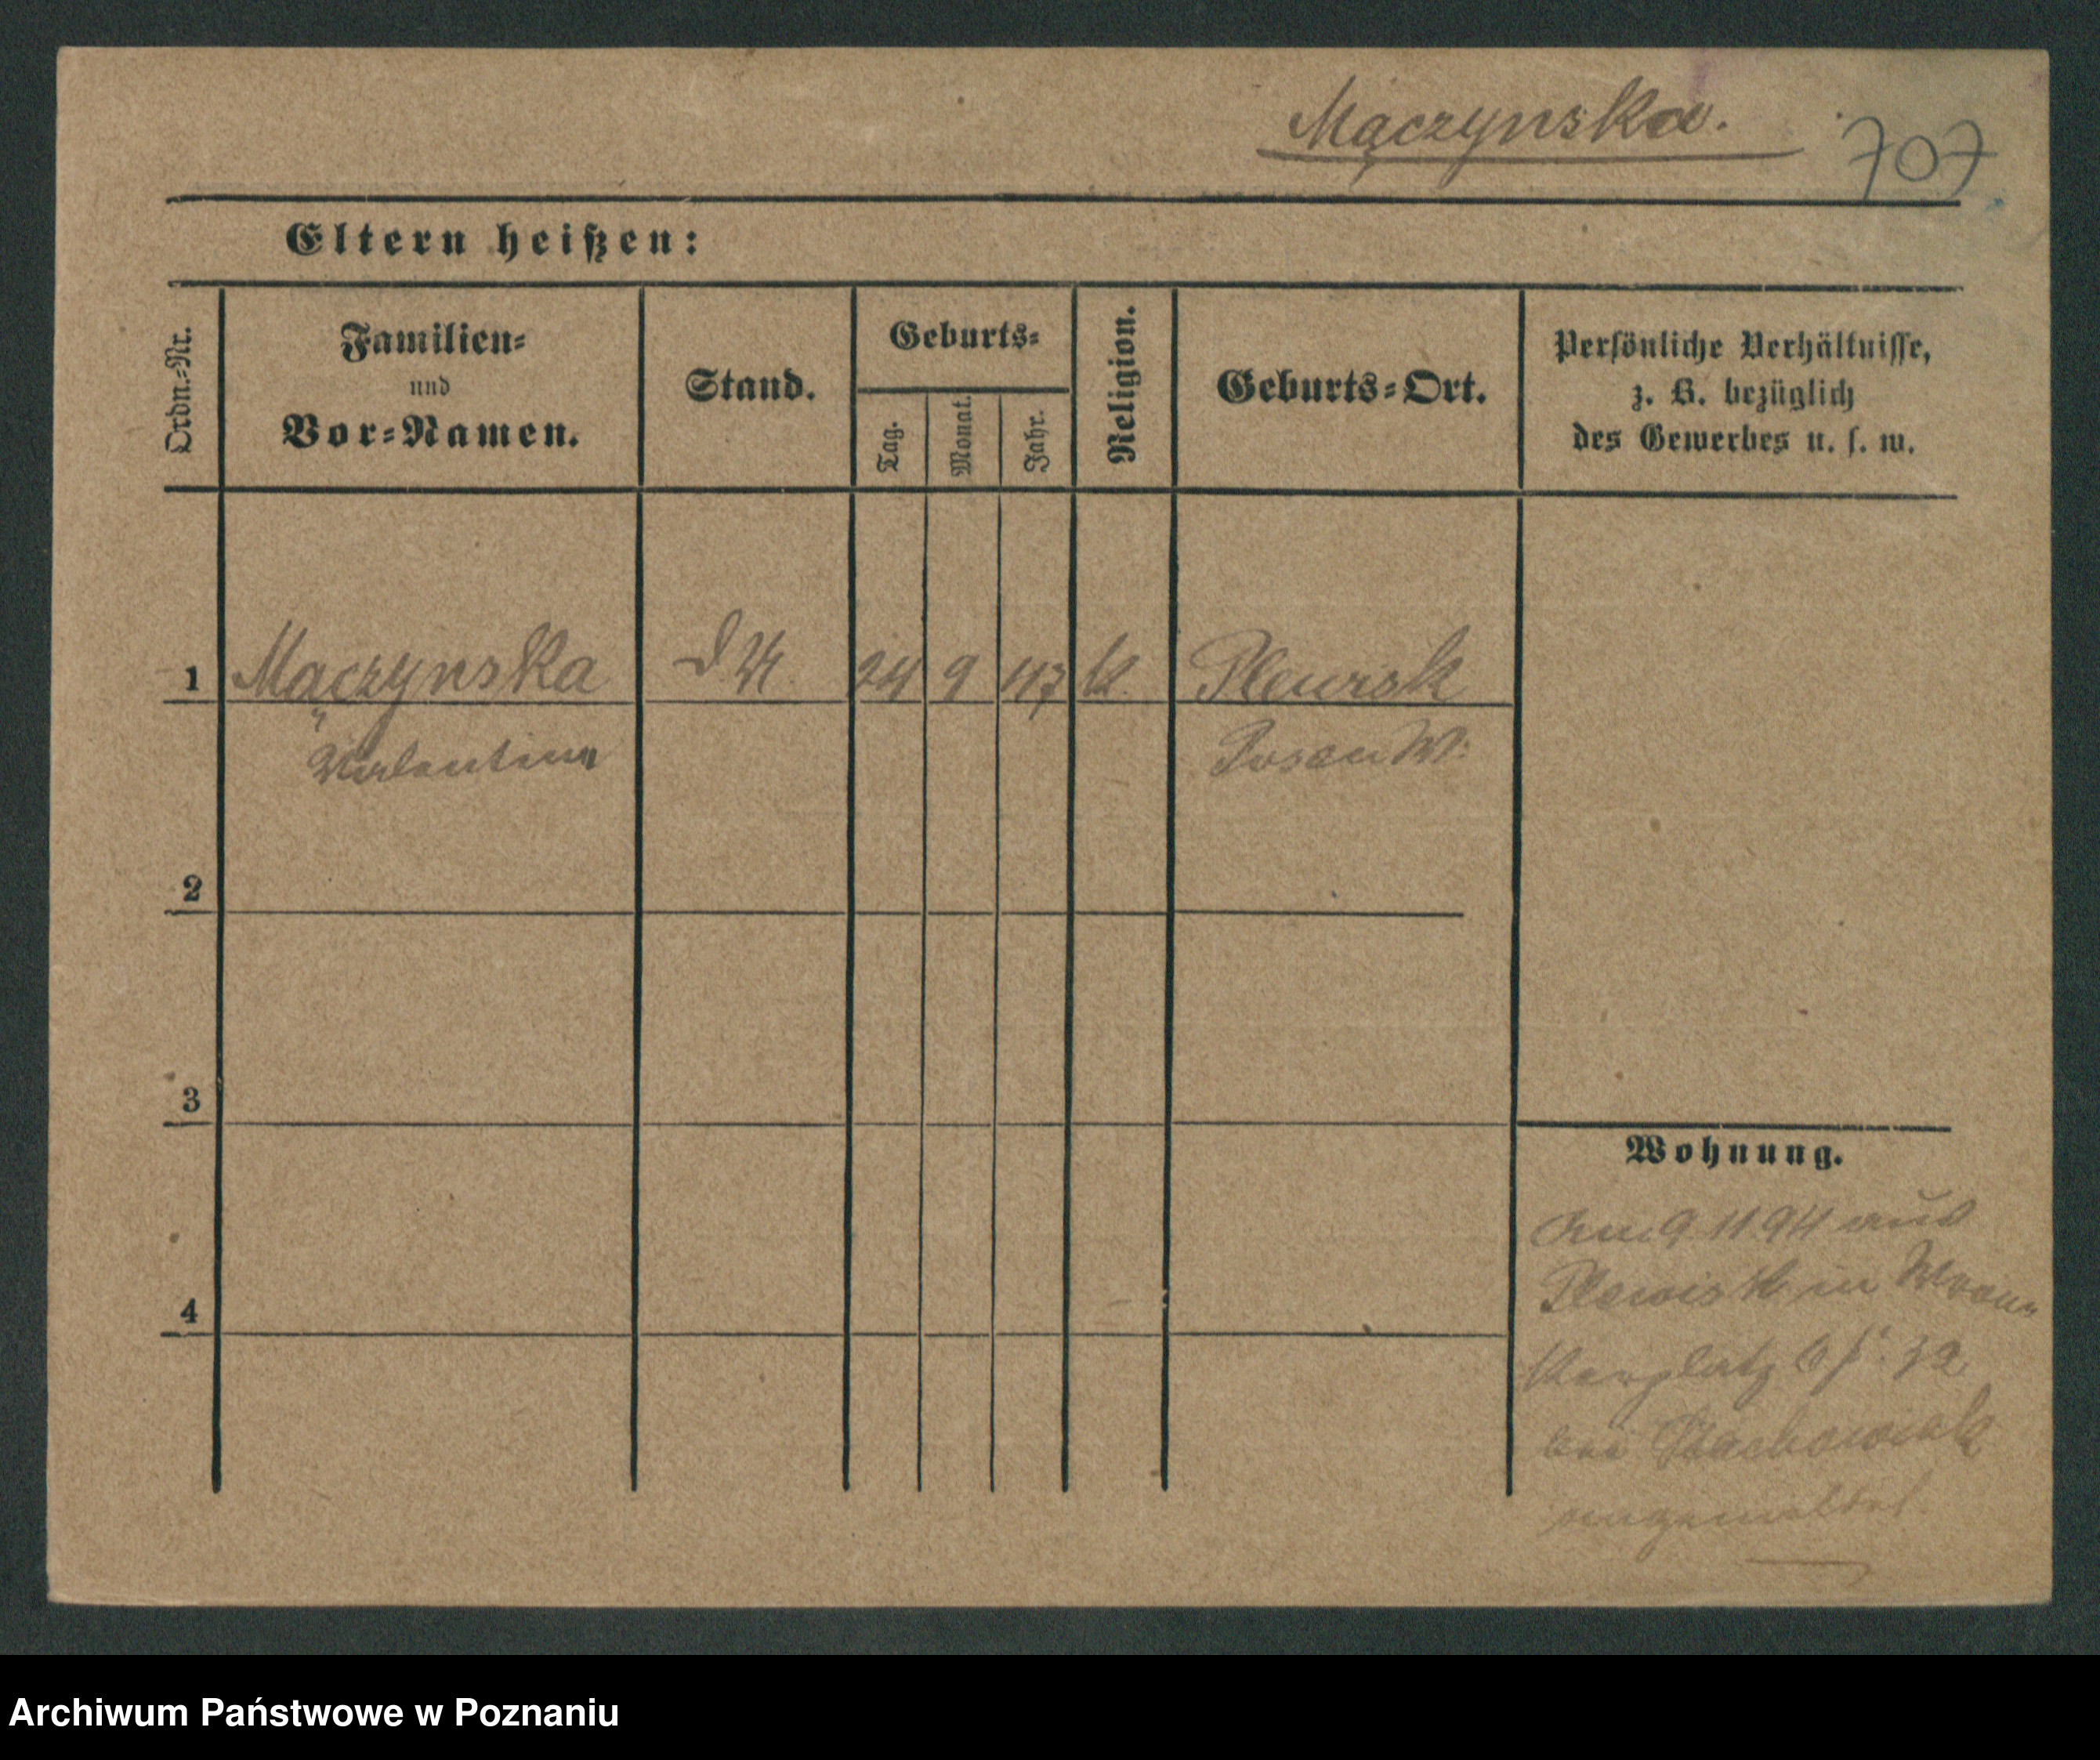 Mączynska.
707
Eltern heißen:
Ordn.-Nr.
Familien-
und
Vor-Namen.
Stand.
Geburts-
Tag.
Monat.
Jahr.
Religion.
Geburts-Ort.
Persönliche Verhältnisse,
z. B. bezüglich
des Gewerbes u. s. w.
1 Mączynska 24 9 47 k. Plewisk
Valentina Posen W.
2
3
4
Wohnung.
Am 9 11 94 aus
Plewisk in
platz
bei Stachowiak
angemeldet.
Archiwum Państwowe w Poznaniu